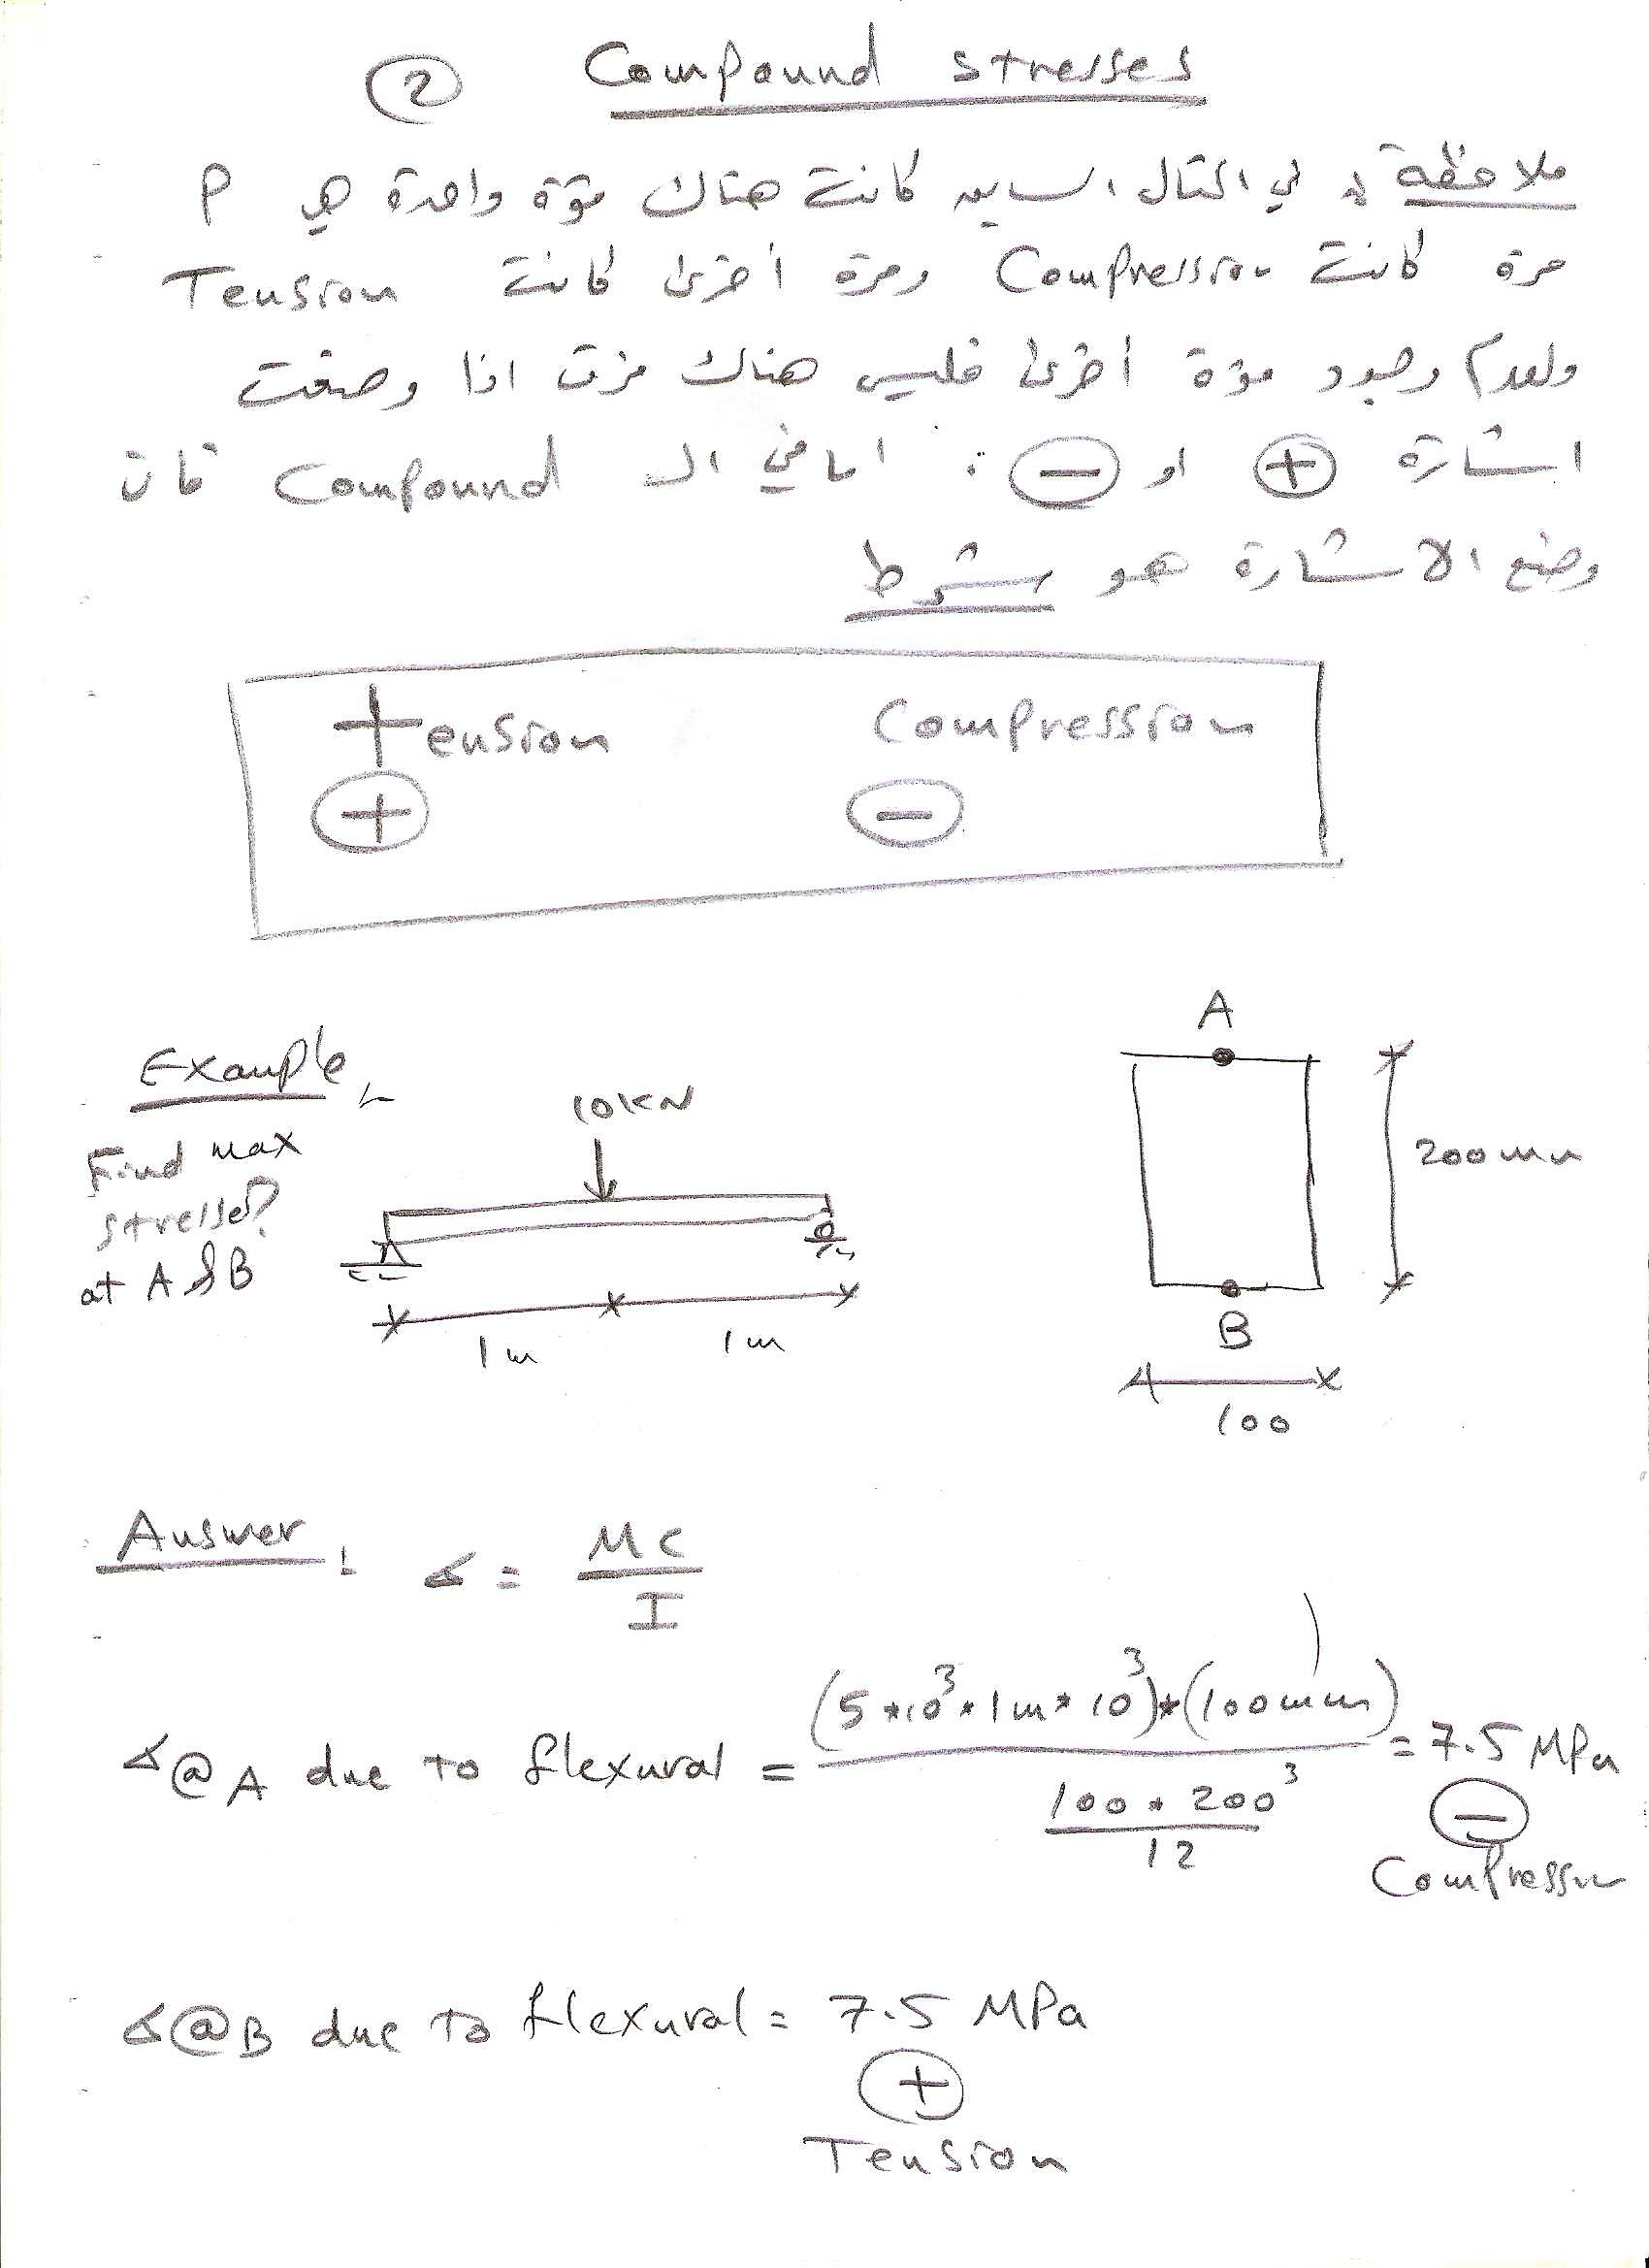 ② Compound stresses
ملاحظة : في المثال السابق كانت هناك قوة واحدة هي P
مرة كانت Compression ومرة أخرى كانت Tension
ولعدم وجود قوة أخرى فليس هناك فرق اذا وضعت
اشارة ⊕ او ⊖ : اما في ال Compound فان
وضع الاشارة هو شرط
Tension Compression
⊕ ⊖
Example
Find max
stresses?
at A & B
10KN
1m 1m
A
200mm
B
100
Answer : σ = MC / I
σ@A due to flexural = (5*10³*1m*10³)*(100mm) / (100*200³ / 12) = 7.5 MPa
⊖
Compression
σ@B due to flexural = 7.5 MPa
⊕
Tension